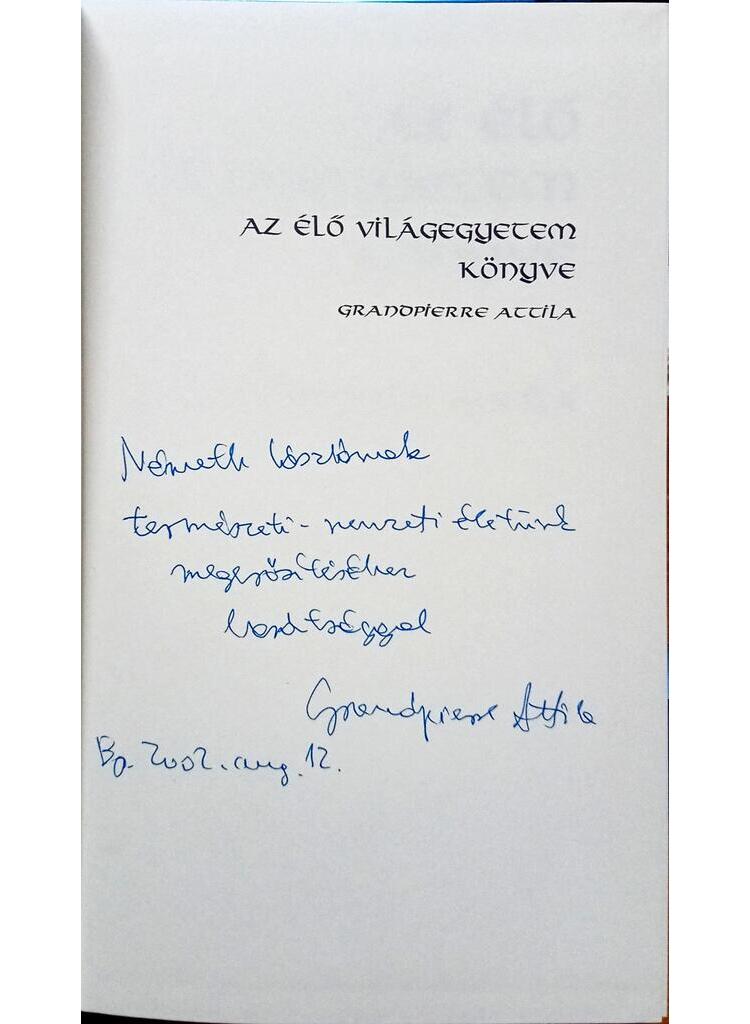 AZ ÉLŐ VILÁGEGYETEM
KÖNYVE
GRANDPIERRE ATTILA
Németh Lászlónak
természeti-nemzeti életünk
megerősítéséhez
barátsággal
Grandpierre Attila
Bp. 2002. aug. 12.